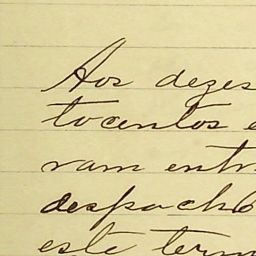 Aos dezes
tocentos e
ram entr
despacho
este term